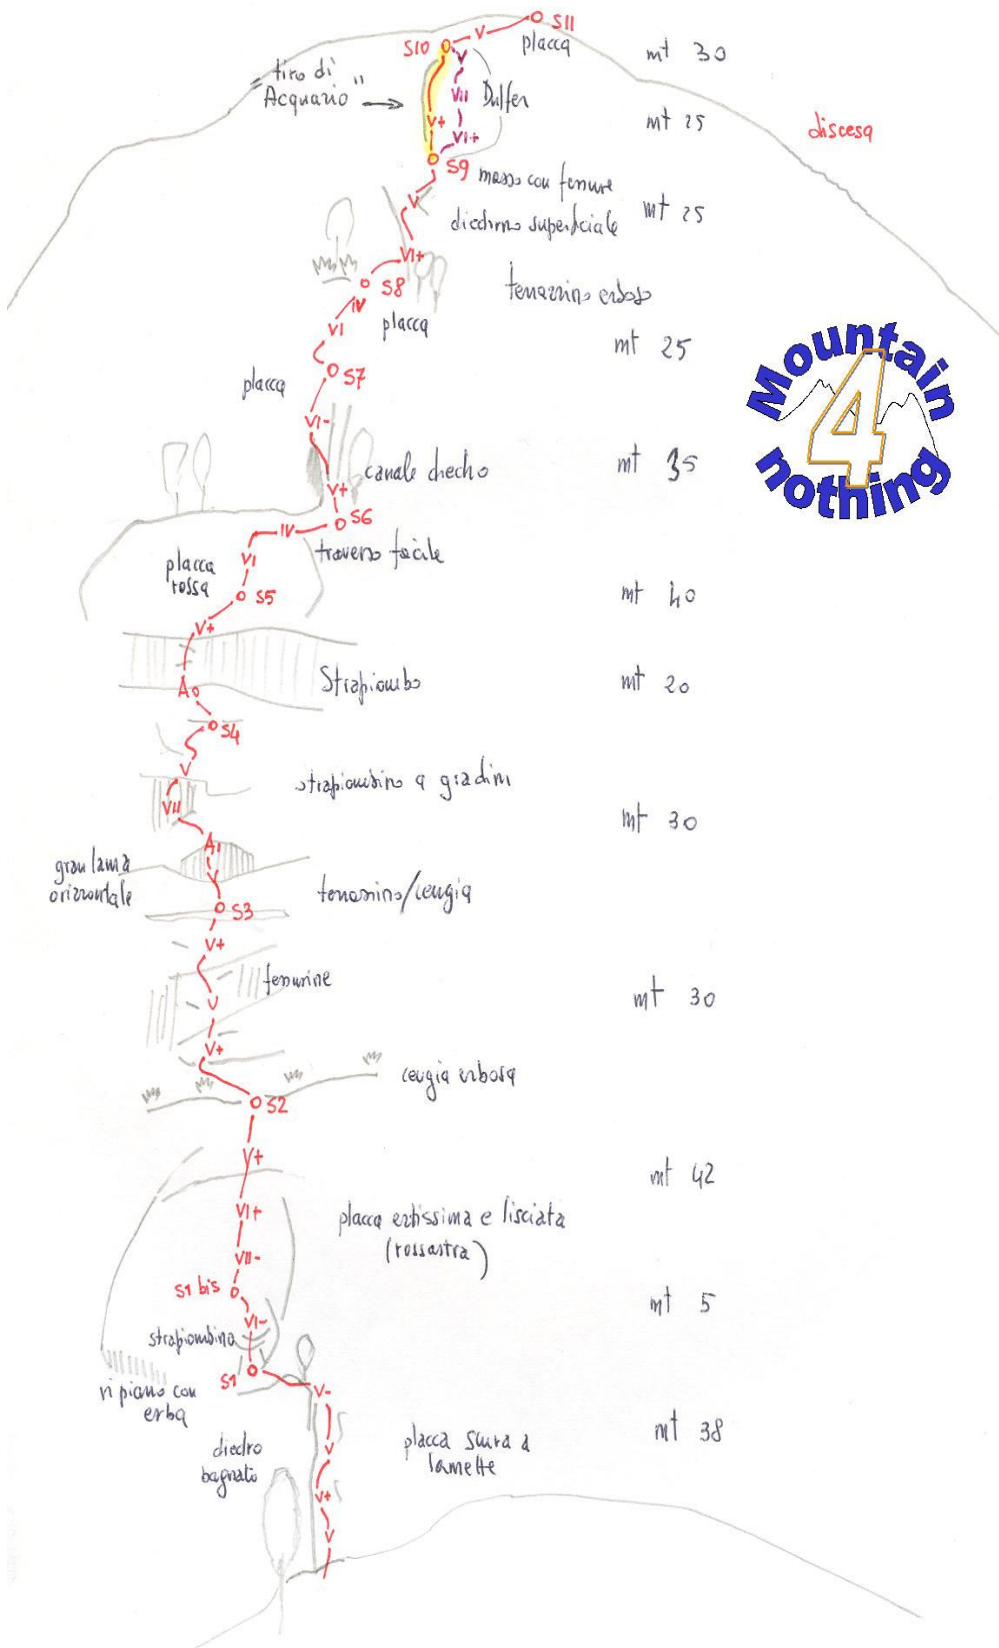 S11
V
placca
S10
mt 30
"tiro di
Acquario"
V
VII
Dulfer
V+
VI+
mt 25
discesa
S9
masso con fessure
V
diedrino superficiale
mt 25
VI+
S8
terrazzino erboso
IV
placca
VI
mt 25
S7
placca
VI-
canale diedro
mt 35
V+
S6
IV
traverso facile
VI
placca
rossa
S5
mt 40
V+
Strapiombo
mt 20
A0
S4
V
strapiombino a gradini
VII
mt 30
A1
gran lama
orizzontale
V
terrazzino/cengia
S3
V+
fessurine
V
mt 30
V+
cengia erbosa
S2
V+
mt 42
VI+
placca ertissima e lisciata
(rossastra)
VII-
S1 bis
mt 5
VI-
strapiombino
S1
V-
ripiano con
erba
diedro
bagnato
V
placca scura a
lamette
mt 38
V+
V
Mountain
4
nothing